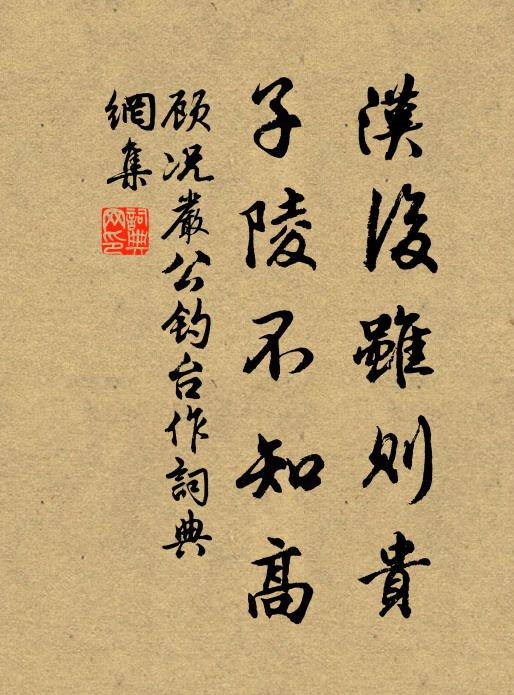 漢後雖則貴
子陵不知高
顾况嚴公釣台作詞典
網集
詞典
网印